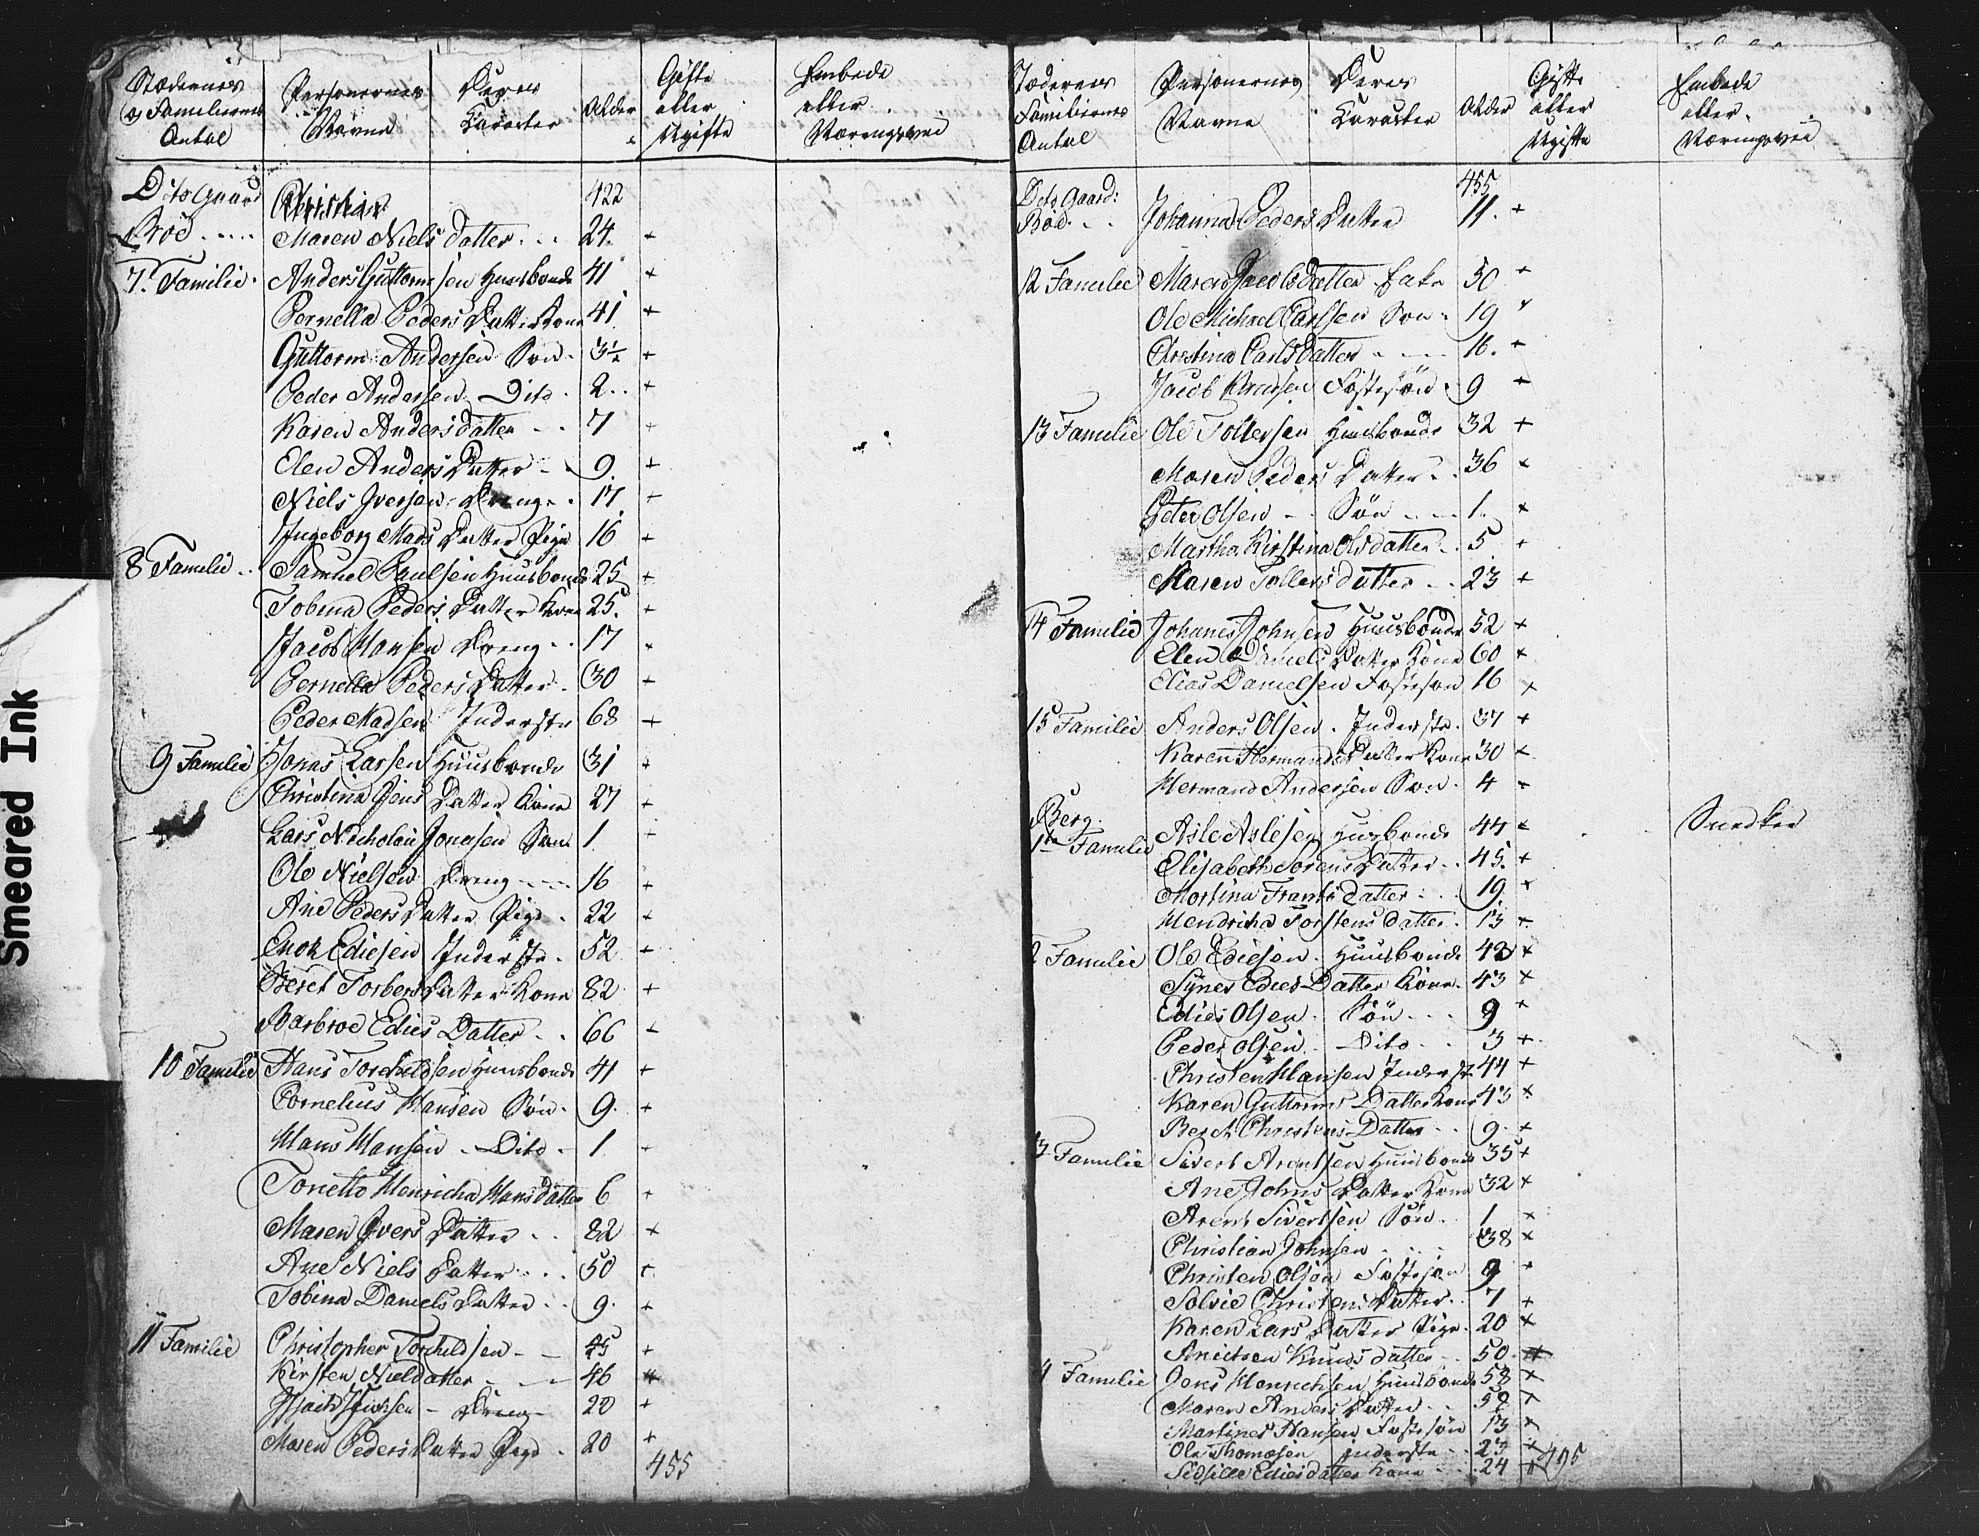 Stædernes
og Familiernes
Antal
Personernes
Navne
Deres
Karacter
Alder
Gifte
eller
Ugifte
Embede
eller
Næringsvei
Dito Gaard 422
Brød Maren Niels Datter 24 +
7. Familie Anders Guttormsen Huusbonde 41 +
Pernella Peders Datter Kone 41 +
Guttorm Andersen Søn 3½ +
Peder Andersen Dito 2 +
Karen Anders datter 7 +
Elen Anders Datter 9 +
Niels Iversen Dreng 17 +
Ingeborg Mads Datter Pige 16 +
8 Familie Samuel Paulsen Huusbonde 25 +
Tobina Peders Datter Kone 25 +
Jacob Hansen Dreng 17 +
Pernella Peders Datter 30 +
Peder Madsen Inderste 68 +
9 Familie Jonas Larsen Huusbonde 31 +
Christina Jens Datter Kone 27 +
Lars Nicholai Jonasen Søn 1 +
Ole Nielsen Dreng 16 +
Ane Peders Datter Pige 22 +
Enok Ediesen Inderste 52 +
Beret Torbers Datter Kone 82 +
Barbroe Edies Datter 66 +
10 Familie Hans Torchildsen Huusbonde 41 +
Cornelius Hansen Søn 9 +
Hans Hansen Dito 1 +
Tonette Henricha Hans Datter 6 +
Maren Ivers Datter 82 +
Ane Niels Datter 50 +
Tobina Daniels Datter 9 +
11 Familie Christopher Torchildsen 45 +
Kirsten Nieldatter 46 +
Dreng 20 +
Maren Peders Datter Pige 20 +
455
Stædernes
Familiernes
Antal
Personernes
Navne
Deres
Karacter
Alder
Gifte
eller
Ugifte
Embede
eller
Næringsvei
Dito Gaard: 455
Brød Johanna Peders Datter 11 +
12 Familie Maren Jacobs Datter Enke 50 +
Ole Michael Carlsen Søn 19 +
Chrestina Carls Datter 16 +
Jacob Fostersøn 9 +
13 Familie Ole Tollersen Huusbonde 32 +
Maren Peders Datter 36 +
Peter Olsen Søn 1 +
Martha Kirstina Olsdatter 5 +
Maren Tollers datter 23 +
14 Familie Johanes Johnsen Huusbonde 52 +
Elen Daniels Datter Kone 60 +
Elias Danielsen Fostersøn 16 +
15 Familie Anders Olsen Inderste 37 +
Karen Hermands Datter Kone 30 +
Hermand Andersen Søn 4 +
Berg
1ste Familie Asle Aslesen Husbonde 44 + Snedker
Elisabeth Sorens Datter 45 +
Mortina Frants Datter 19 +
Hendricha Torstens datter 13 +
2 Familie Ole Ediesen Huusbonde 42 +
Synes Edies Datter Kone 43 +
Edies Olsen Søn 9 +
Peder Olsen Dito 3 +
Christen Hansen Inderst 44 +
Karen Guttorms Datter Kone 43 +
Beret Christens Datter 9 +
3 Familie Sivert Arentsen Huusbonde 35 +
Ane Johns Datter Kone 32 +
Arent Sivertsen Søn 1 +
Christian Johnsen 38 +
Christen Olson Fostersøn 9 +
Solvie Christens Datter 7 +
Karen Lars Datter Pige 20 +
Knuds datter 50 +
4 Familie Jens Henrichsen Huusbonde 58 +
Maren Anders Datter 52 +
Martines Hansen Fostersøn 13 +
Ole Thomasen Inderste 23 +
Sidsille Edies datter Kone 24 + 495
Smeared Ink